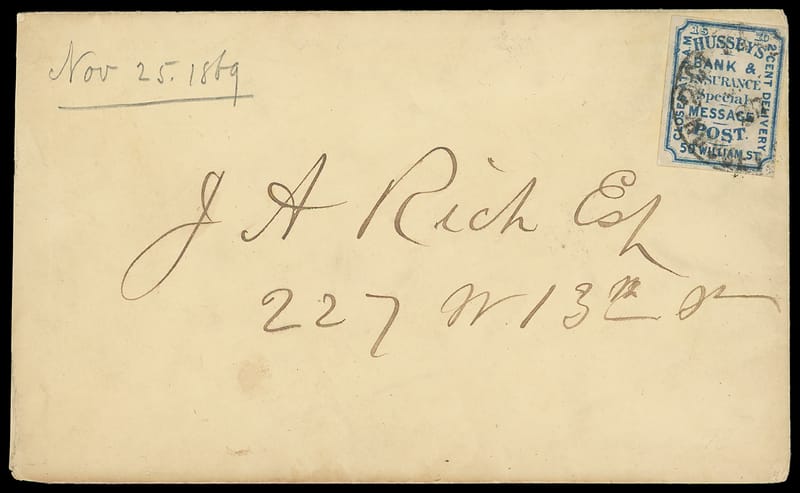 Nov 25. 1869
CLOSES AM
15 10
HUSSEY'S
BANK &
INSURANCE
Special
MESSAGE
POST.
50 WILLIAM. ST.
2 CENT DELIVERY
J A Rich Esq
227 W. 13th St